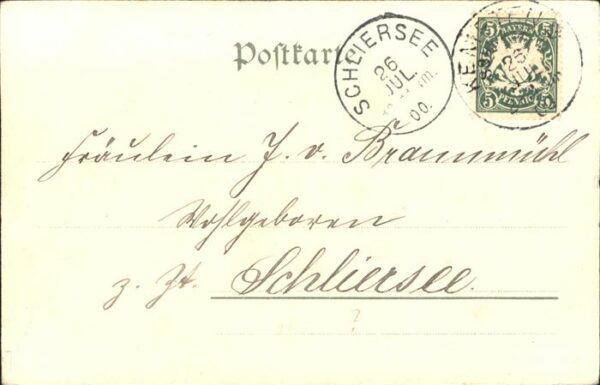 Postkarte
SCHLIERSEE
26
JUL.
00.
KEMPTEN
25
JUL
BAYERN
5 5
PFENNIG
Fräulein J. v. Braunmühl
Wohlgeboren
z. Zt. Schliersee.
?